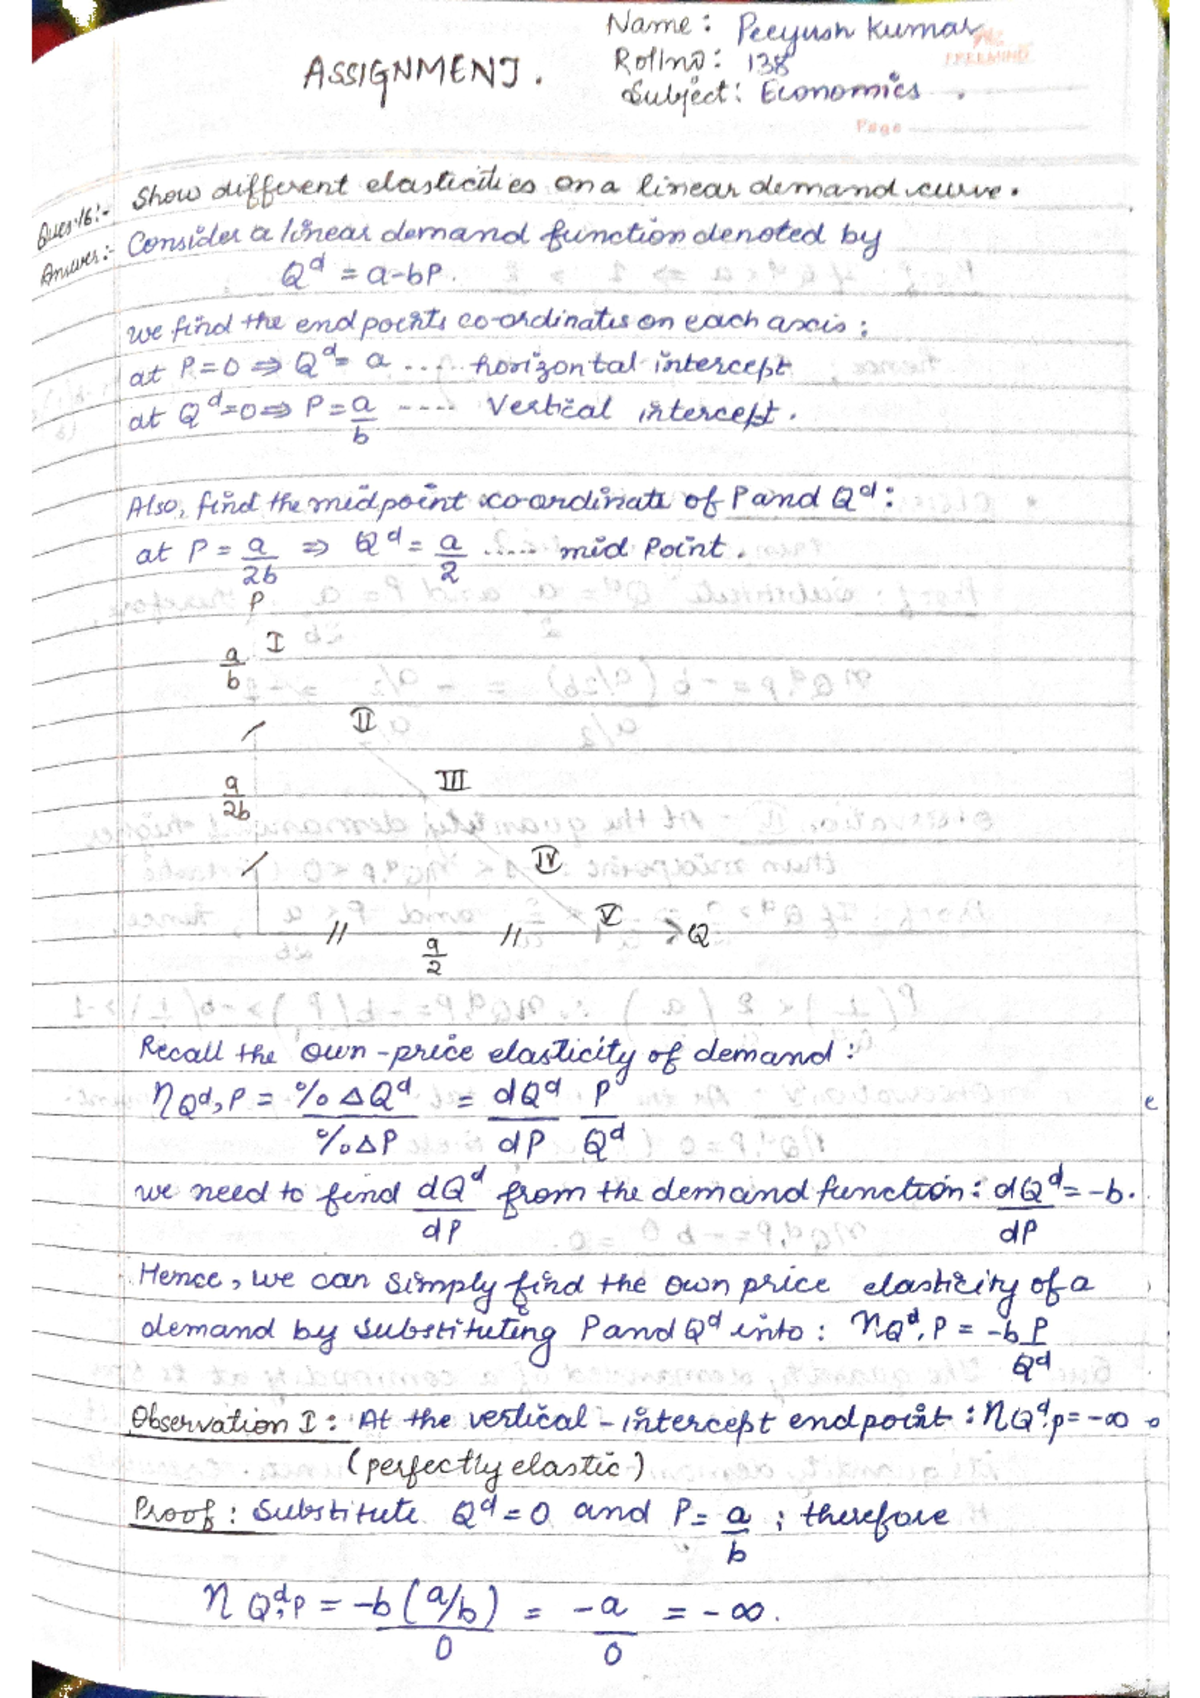 Name: Peeyush Kumar
ASSIGNMENT.
Rollno: 138
Subject: Economics.
Page
Ques16:- Show different elasticities on a linear demand curve.
Answer:- Consider a linear demand function denoted by
Q^d = a-bP.
we find the end points co-ordinates on each axis:
at P=0 ⇒ Q^d = a .... horizontal intercept
at Q^d=0 ⇒ P = a/b ---- Vertical intercept.
Also, find the midpoint co-ordinate of P and Q^d:
at P = a/2b ⇒ Q^d = a/2 ..... mid Point.
P
I
a/b
II
III
a/2b
IV
V
Q
a/2
Recall the own-price elasticity of demand:
η Q^d,P = %ΔQ^d / %ΔP = dQ^d/dP P/Q^d
we need to find dQ^d/dP from the demand function: dQ^d/dP = -b.
Hence, we can simply find the own price elasticity of a
demand by substituting P and Q^d into: η Q^d,P = -b P/Q^d
Observation I: At the vertical-intercept endpoint: η Q^d,P = -∞
(perfectly elastic)
Proof: Substitute Q^d = 0 and P = a/b ; therefore
η Q^d,P = -b(a/b)/0 = -a/0 = -∞.